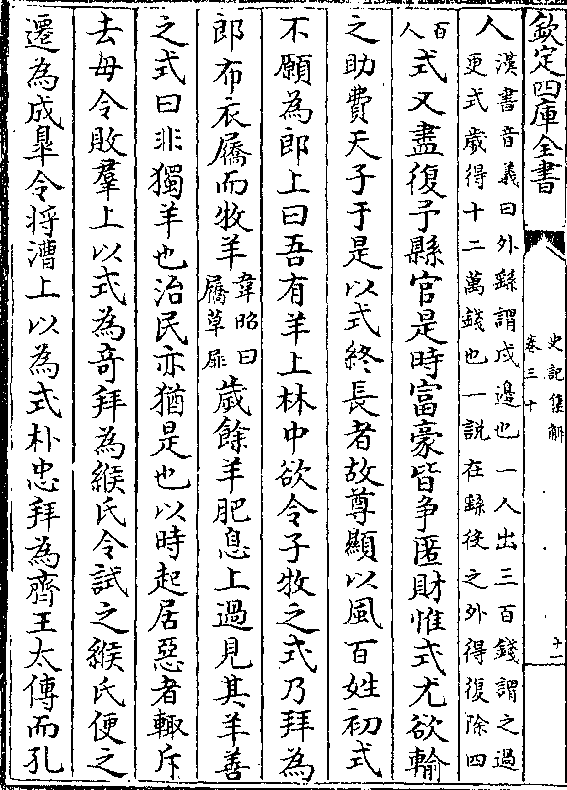 欽定四庫全書
史記集解
卷三十
十二
人漢書音義曰外繇謂戍邊也一人出三百錢謂之過
更式歲得十二萬錢也一說在繇役之外得復除四
百人式又盡復予縣官是時富豪皆爭匿財惟式尤欲輸
之助費天子于是以式終長者故尊顯以風百姓初式
不願為郎上曰吾有羊上林中欲令子牧之式乃拜為
郎布衣屩而牧羊韋昭曰屩草屝歲餘羊肥息上過見其羊善
之式曰非獨羊也治民亦猶是也以時起居惡者輒斥
去毋令敗羣上以式為奇拜為緱氏令試之緱氏便之
遷為成臯令将漕上以為式朴忠拜為齊王太傅而孔